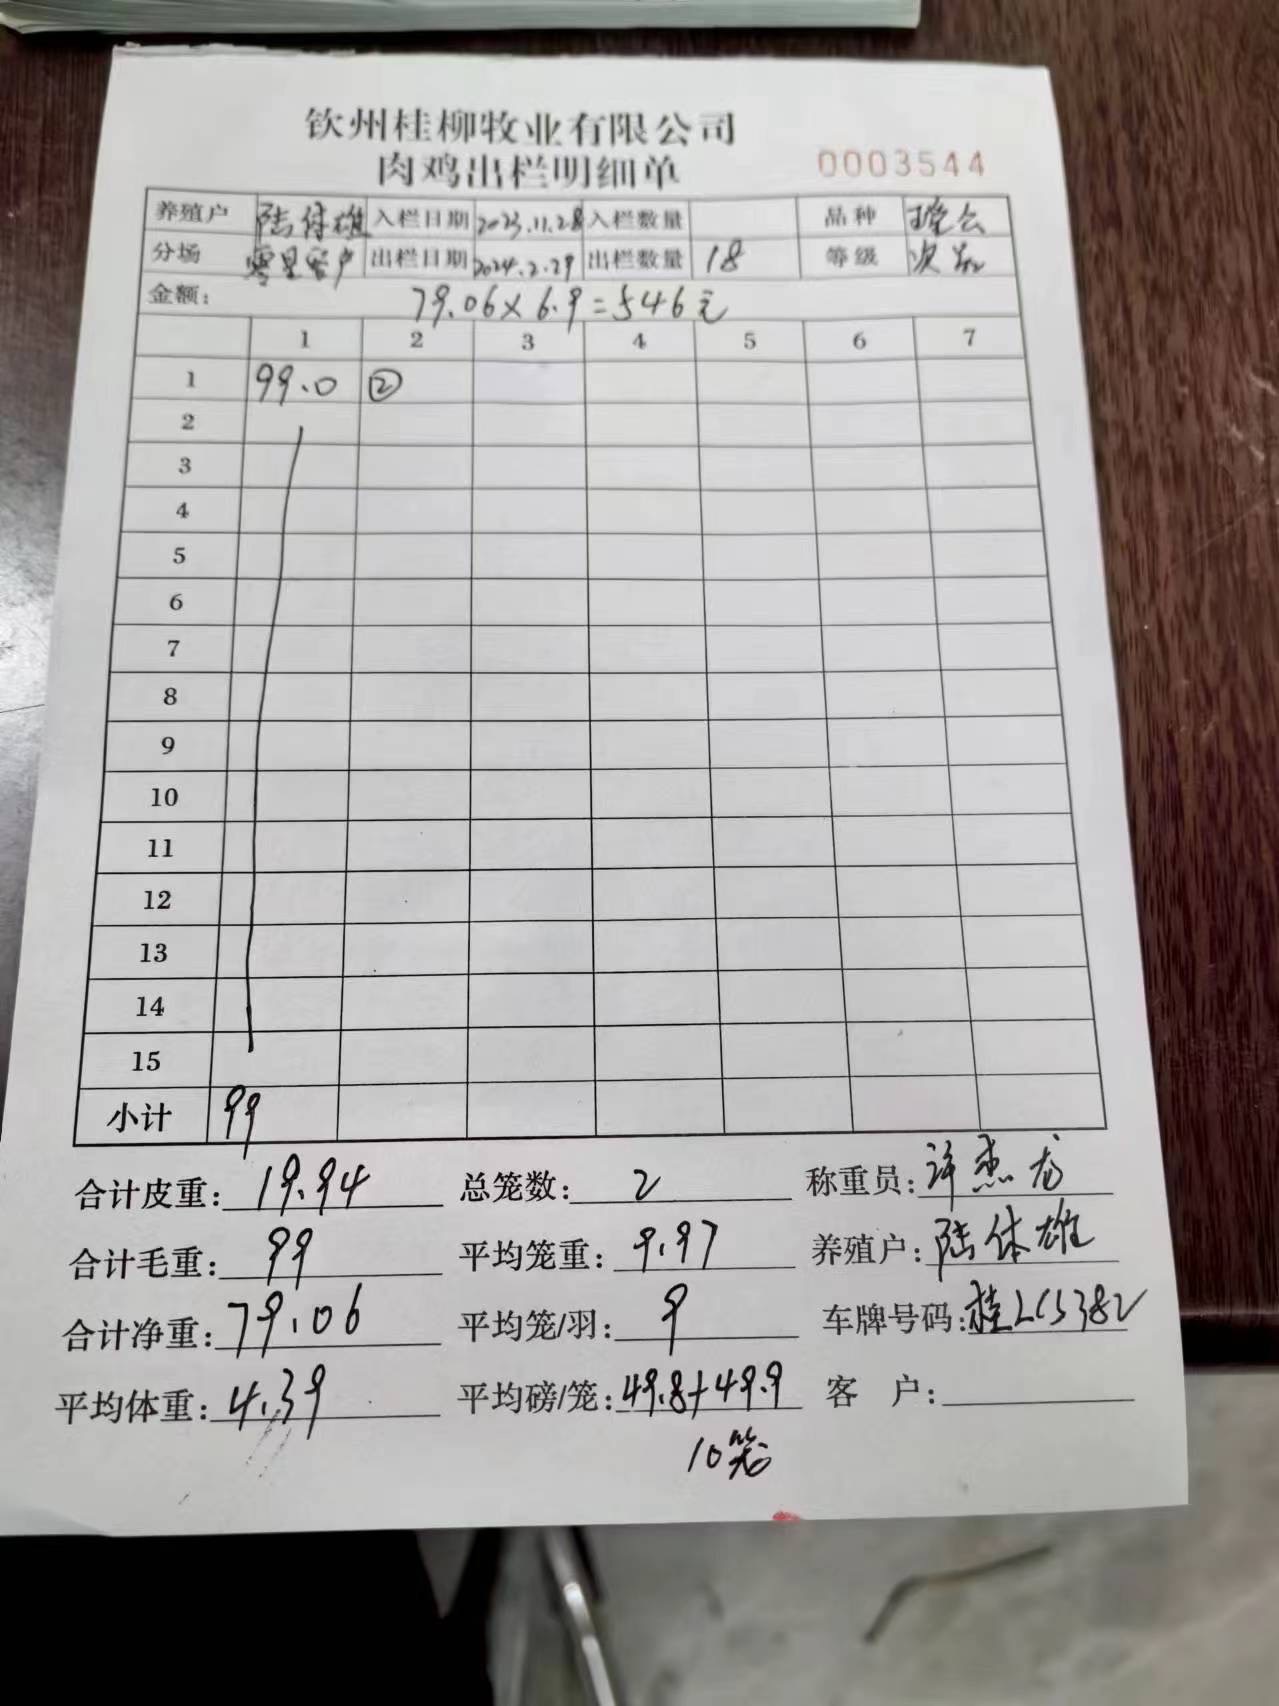 钦州桂柳牧业有限公司
肉鸡出栏明细单 0003544
养殖户 陆体雄 入栏日期 2023.11.28 入栏数量 品种
分场 零星客户 出栏日期 2024.2.29 出栏数量 18 等级 次
金额: 79.06×6.9=546元
1 2 3 4 5 6 7
1 99.0 ②
2
3
4
5
6
7
8
9
10
11
12
13
14
15
小计 99
合计皮重: 19.94 总笼数: 2 称重员: 许杰龙
合计毛重: 99 平均笼重: 9.97 养殖户: 陆体雄
合计净重: 79.06 平均笼/羽: 9 车牌号码: 桂LC5382
平均体重: 4.39 平均磅/笼: 49.8+49.9 客 户:
10笼